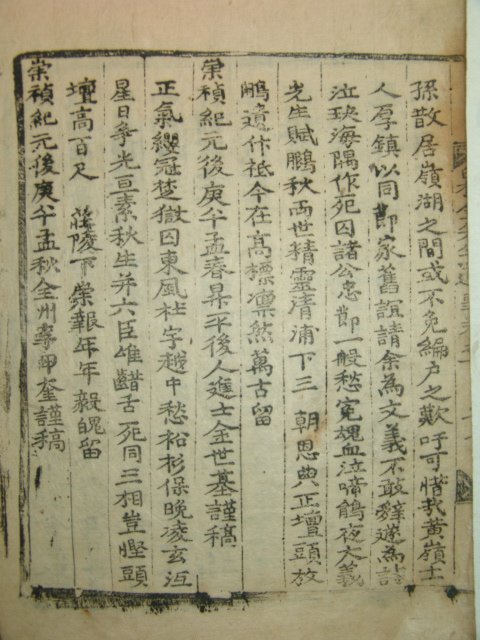 孫散居嶺湖之間或不免編户之歎吁可惜哉黃嶺士
人厚鎭以同鄭家舊誼請余為文義不敢辭遂為詩
泣玦海隅作死囚諸公忠節一般愁寃魂血泣啼鵑夜大義
光生賦鵬秋兩世精靈清浦下三 朝恩典正壇頭放
鵬遺作祗今在高標凜然萬古留
崇禎紀元後庚午孟春昇平後人進士金世基謹稿
正氣纓冠楚獄囚東風杜宇越中愁裕杉保晚凌玄沍
星日爭光亘素秋生并六臣雖齰舌死同三相豈慳頭
壇高百尺 莊陵下崇報年年毅魄留
崇禎紀元後庚午孟秋全州李 奎謹稿